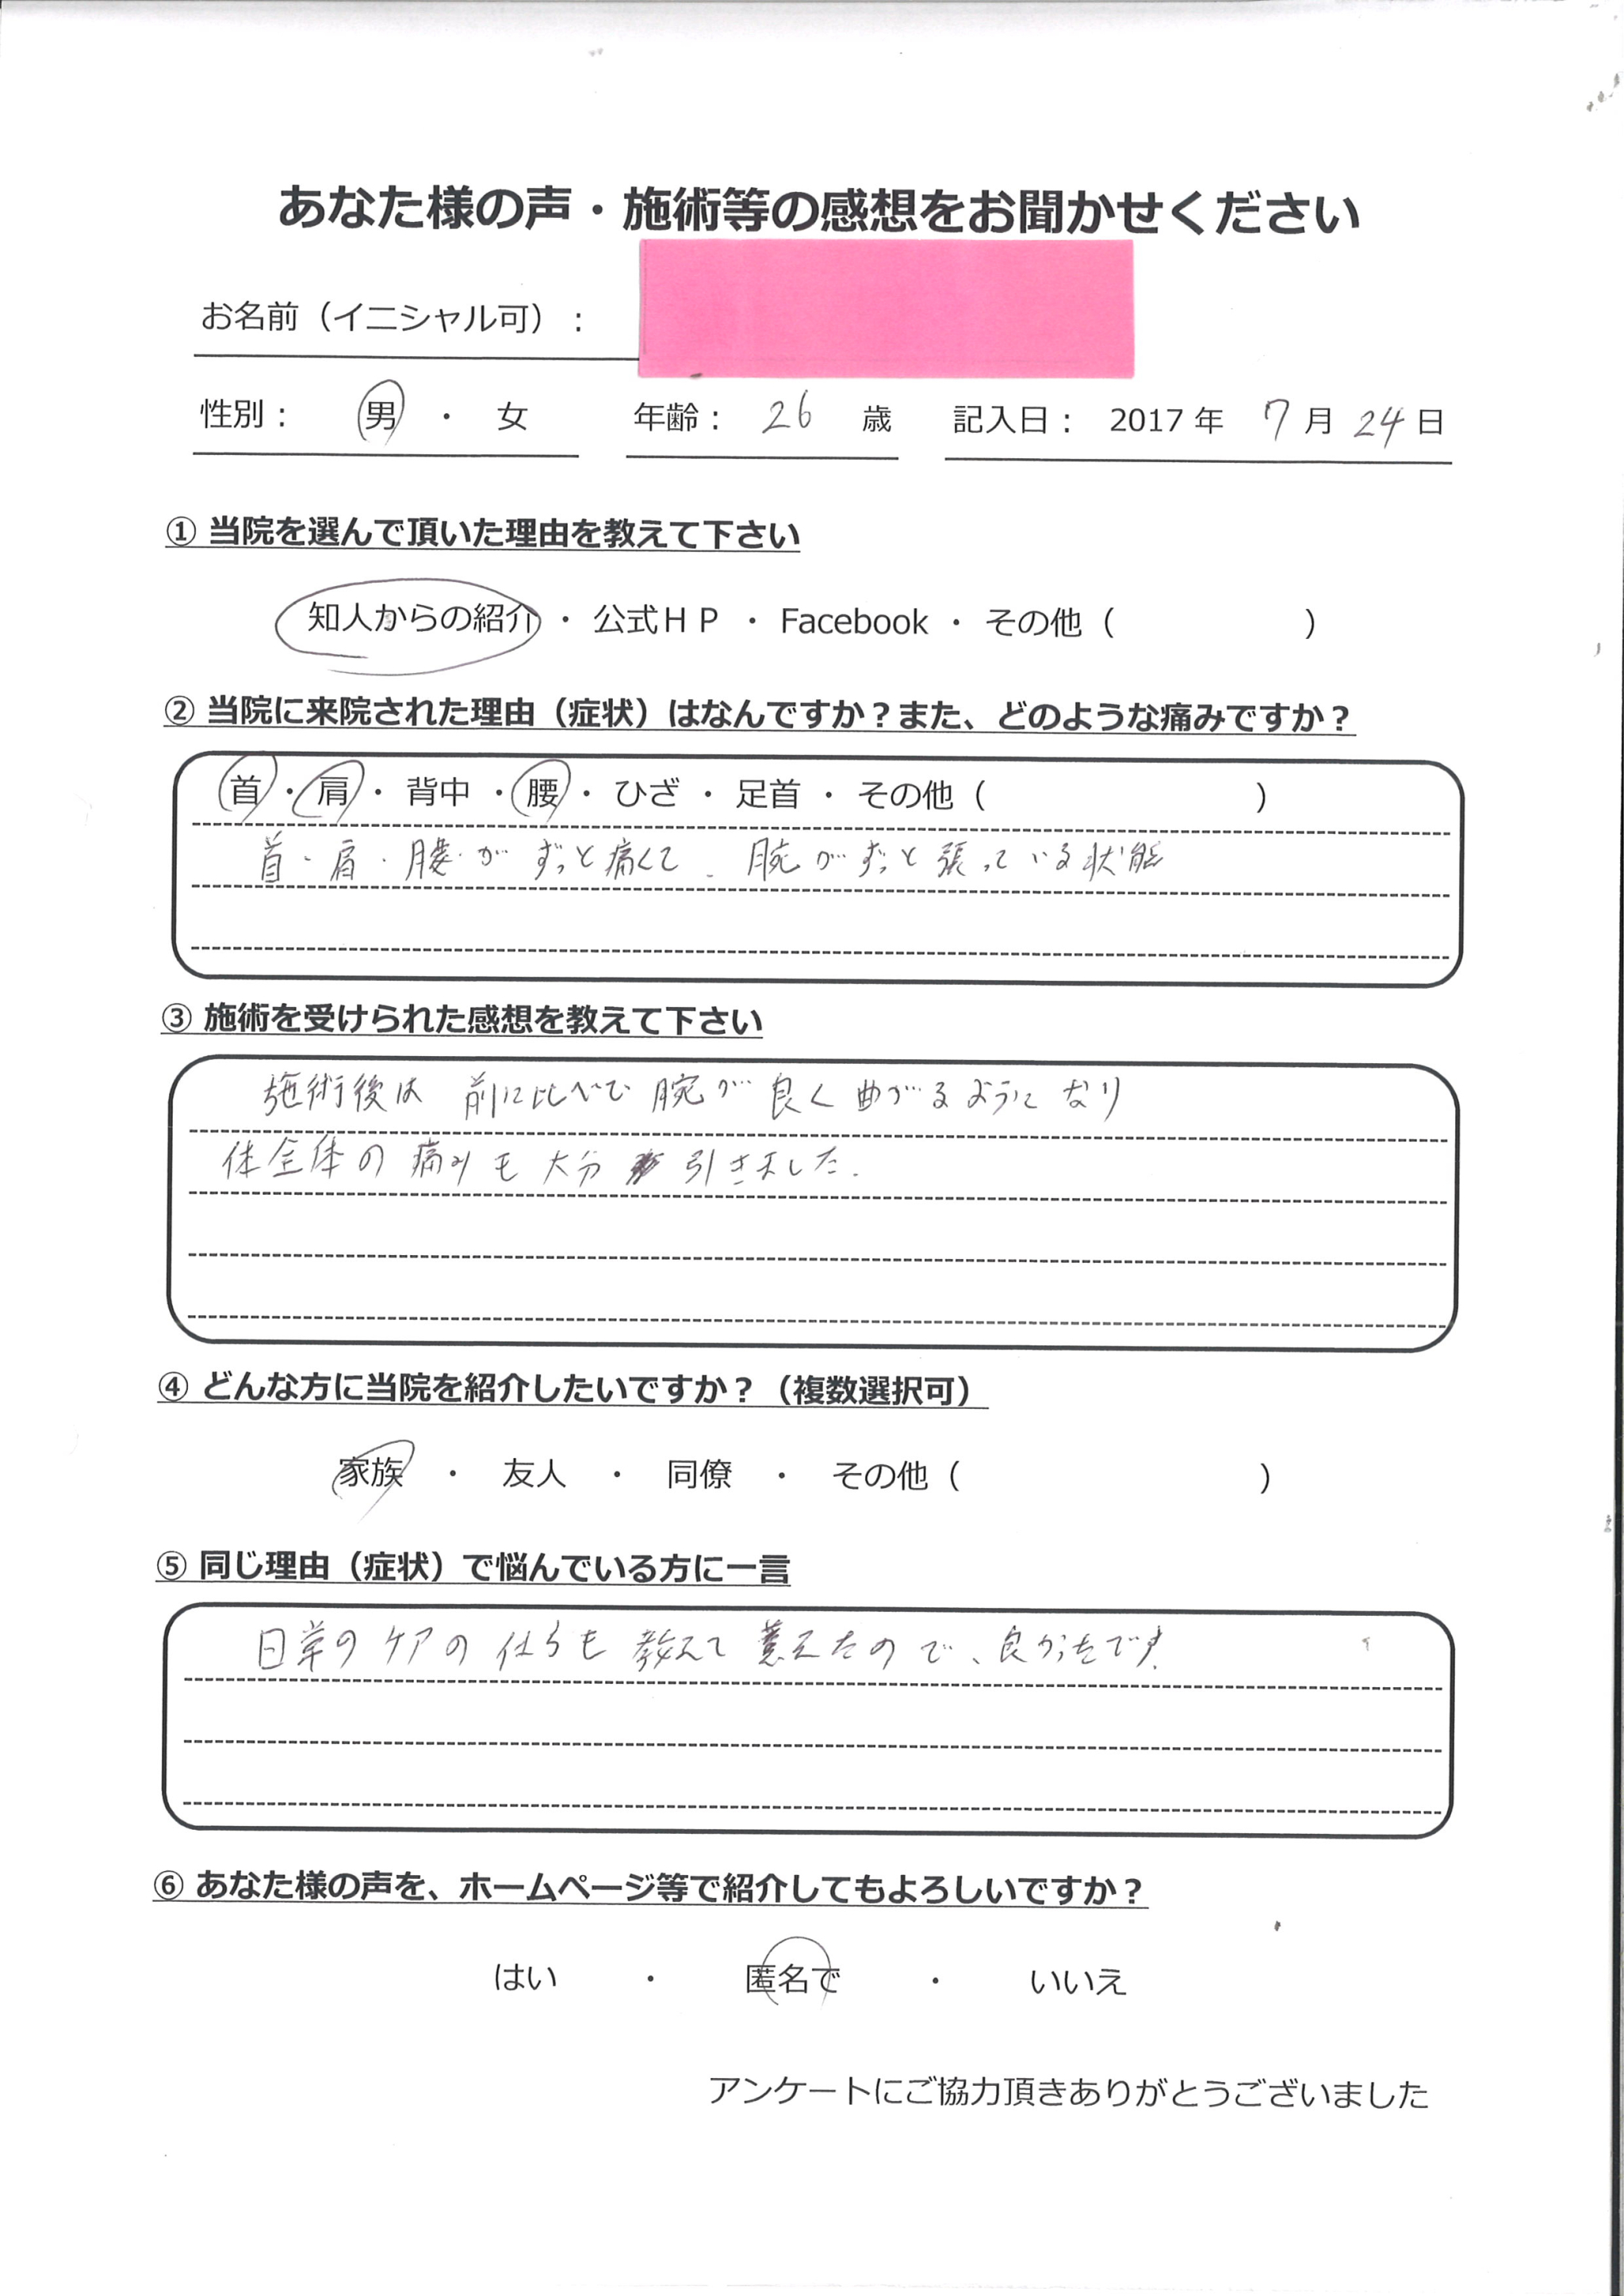 あなた様の声・施術等の感想をお聞かせください
お名前（イニシャル可）：
性別： 男 ・ 女 年齢： 26 歳 記入日： 2017 年 7 月 24 日
① 当院を選んで頂いた理由を教えて下さい
知人からの紹介 ・ 公式ＨＰ ・ Facebook ・ その他（ ）
② 当院に来院された理由（症状）はなんですか？また、どのような痛みですか？
首 ・ 肩 ・ 背中 ・ 腰 ・ ひざ ・ 足首 ・ その他（ ）
首・肩・腰がずっと痛くて、腕がずっと張っている状態
③ 施術を受けられた感想を教えて下さい
施術後は 前に比べて 腕が 良く 曲がるようになり
体全体の 痛みも 大分 引きました.
④ どんな方に当院を紹介したいですか？（複数選択可）
家族 ・ 友人 ・ 同僚 ・ その他（ ）
⑤ 同じ理由（症状）で悩んでいる方に一言
日常の ケアの 仕方も 教えて 貰えたので、良かったです.
⑥ あなた様の声を、ホームページ等で紹介してもよろしいですか？
はい ・ 匿名で ・ いいえ
アンケートにご協力頂きありがとうございました